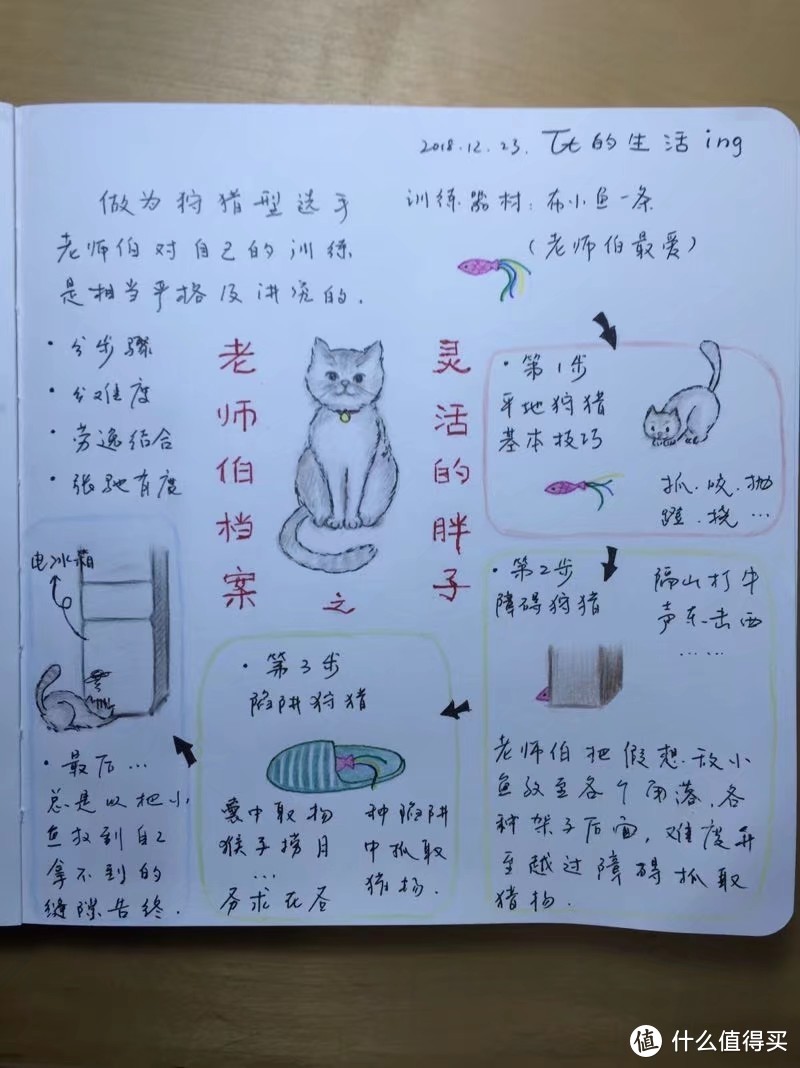 2018.12.23. Tt的生活ing
做为狩猎型选手
老师伯对自己的训练
是相当严格及讲究的.
训练器材：布小鱼一条
（老师伯最爱）
·分步骤
·分难度
·劳逸结合
·张驰有度
老师伯档案
之
灵活的胖子
·第1步
平地狩猎
基本技巧
抓.咬.抛
蹬.挠…
·第2步
障碍狩猎
隔山打牛
声东击西
……
老师伯把假想敌小
鱼放至各个角落、各
种架子后面，难度升
至越过障碍抓取
猎物.
·第3步
陷阱狩猎
囊中取物
猴子捞月
…
种陷阱
中抓取
猎物.
电冰箱
·最后…
总是以把小
鱼放到自己
拿不到的
缝隙告终.
值 什么值得买